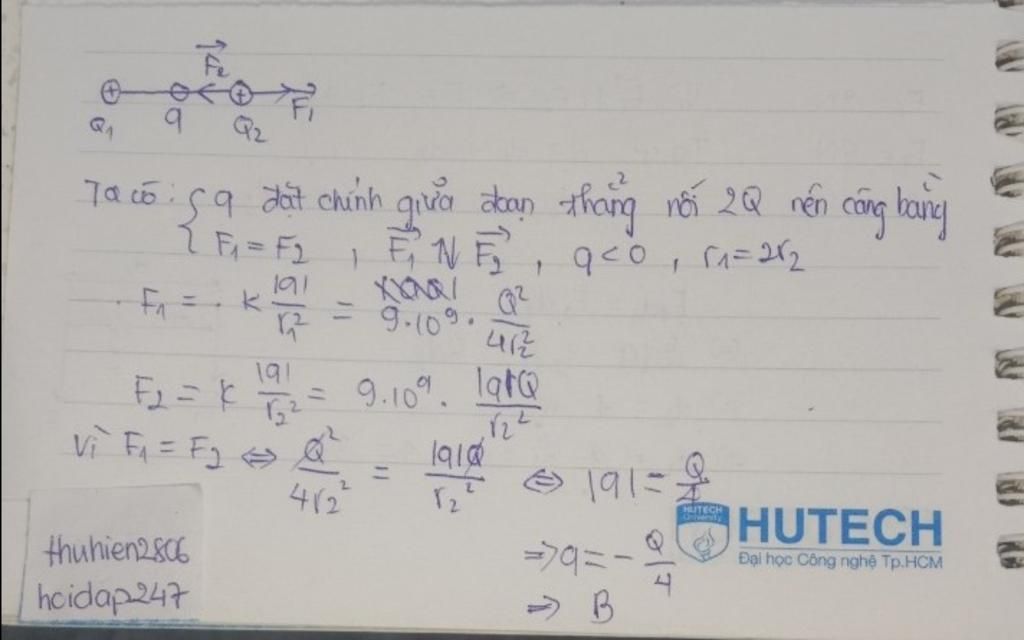 F₂
Q₁ q Q₂ F₁
Ta có: { q đặt chính giữa đoạn thẳng nối 2Q nên cân bằng
F₁ = F₂ , F₁ ↑↓ F₂ , q < 0 , r₁ = 2r₂
F₁ = k |q|/r₁² = 9.10⁹ . Q²/4r₂²
F₂ = k |q|/r₂² = 9.10⁹ . |q|Q/r₂²
Vì F₁ = F₂ ⇔ Q²/4r₂² = |q|Q/r₂² ⇔ |q| = Q/4
⇒ q = - Q/4
⇒ B
thuhien2806
hoidap247
HUTECH
University
HUTECH
Đại học Công nghệ Tp.HCM